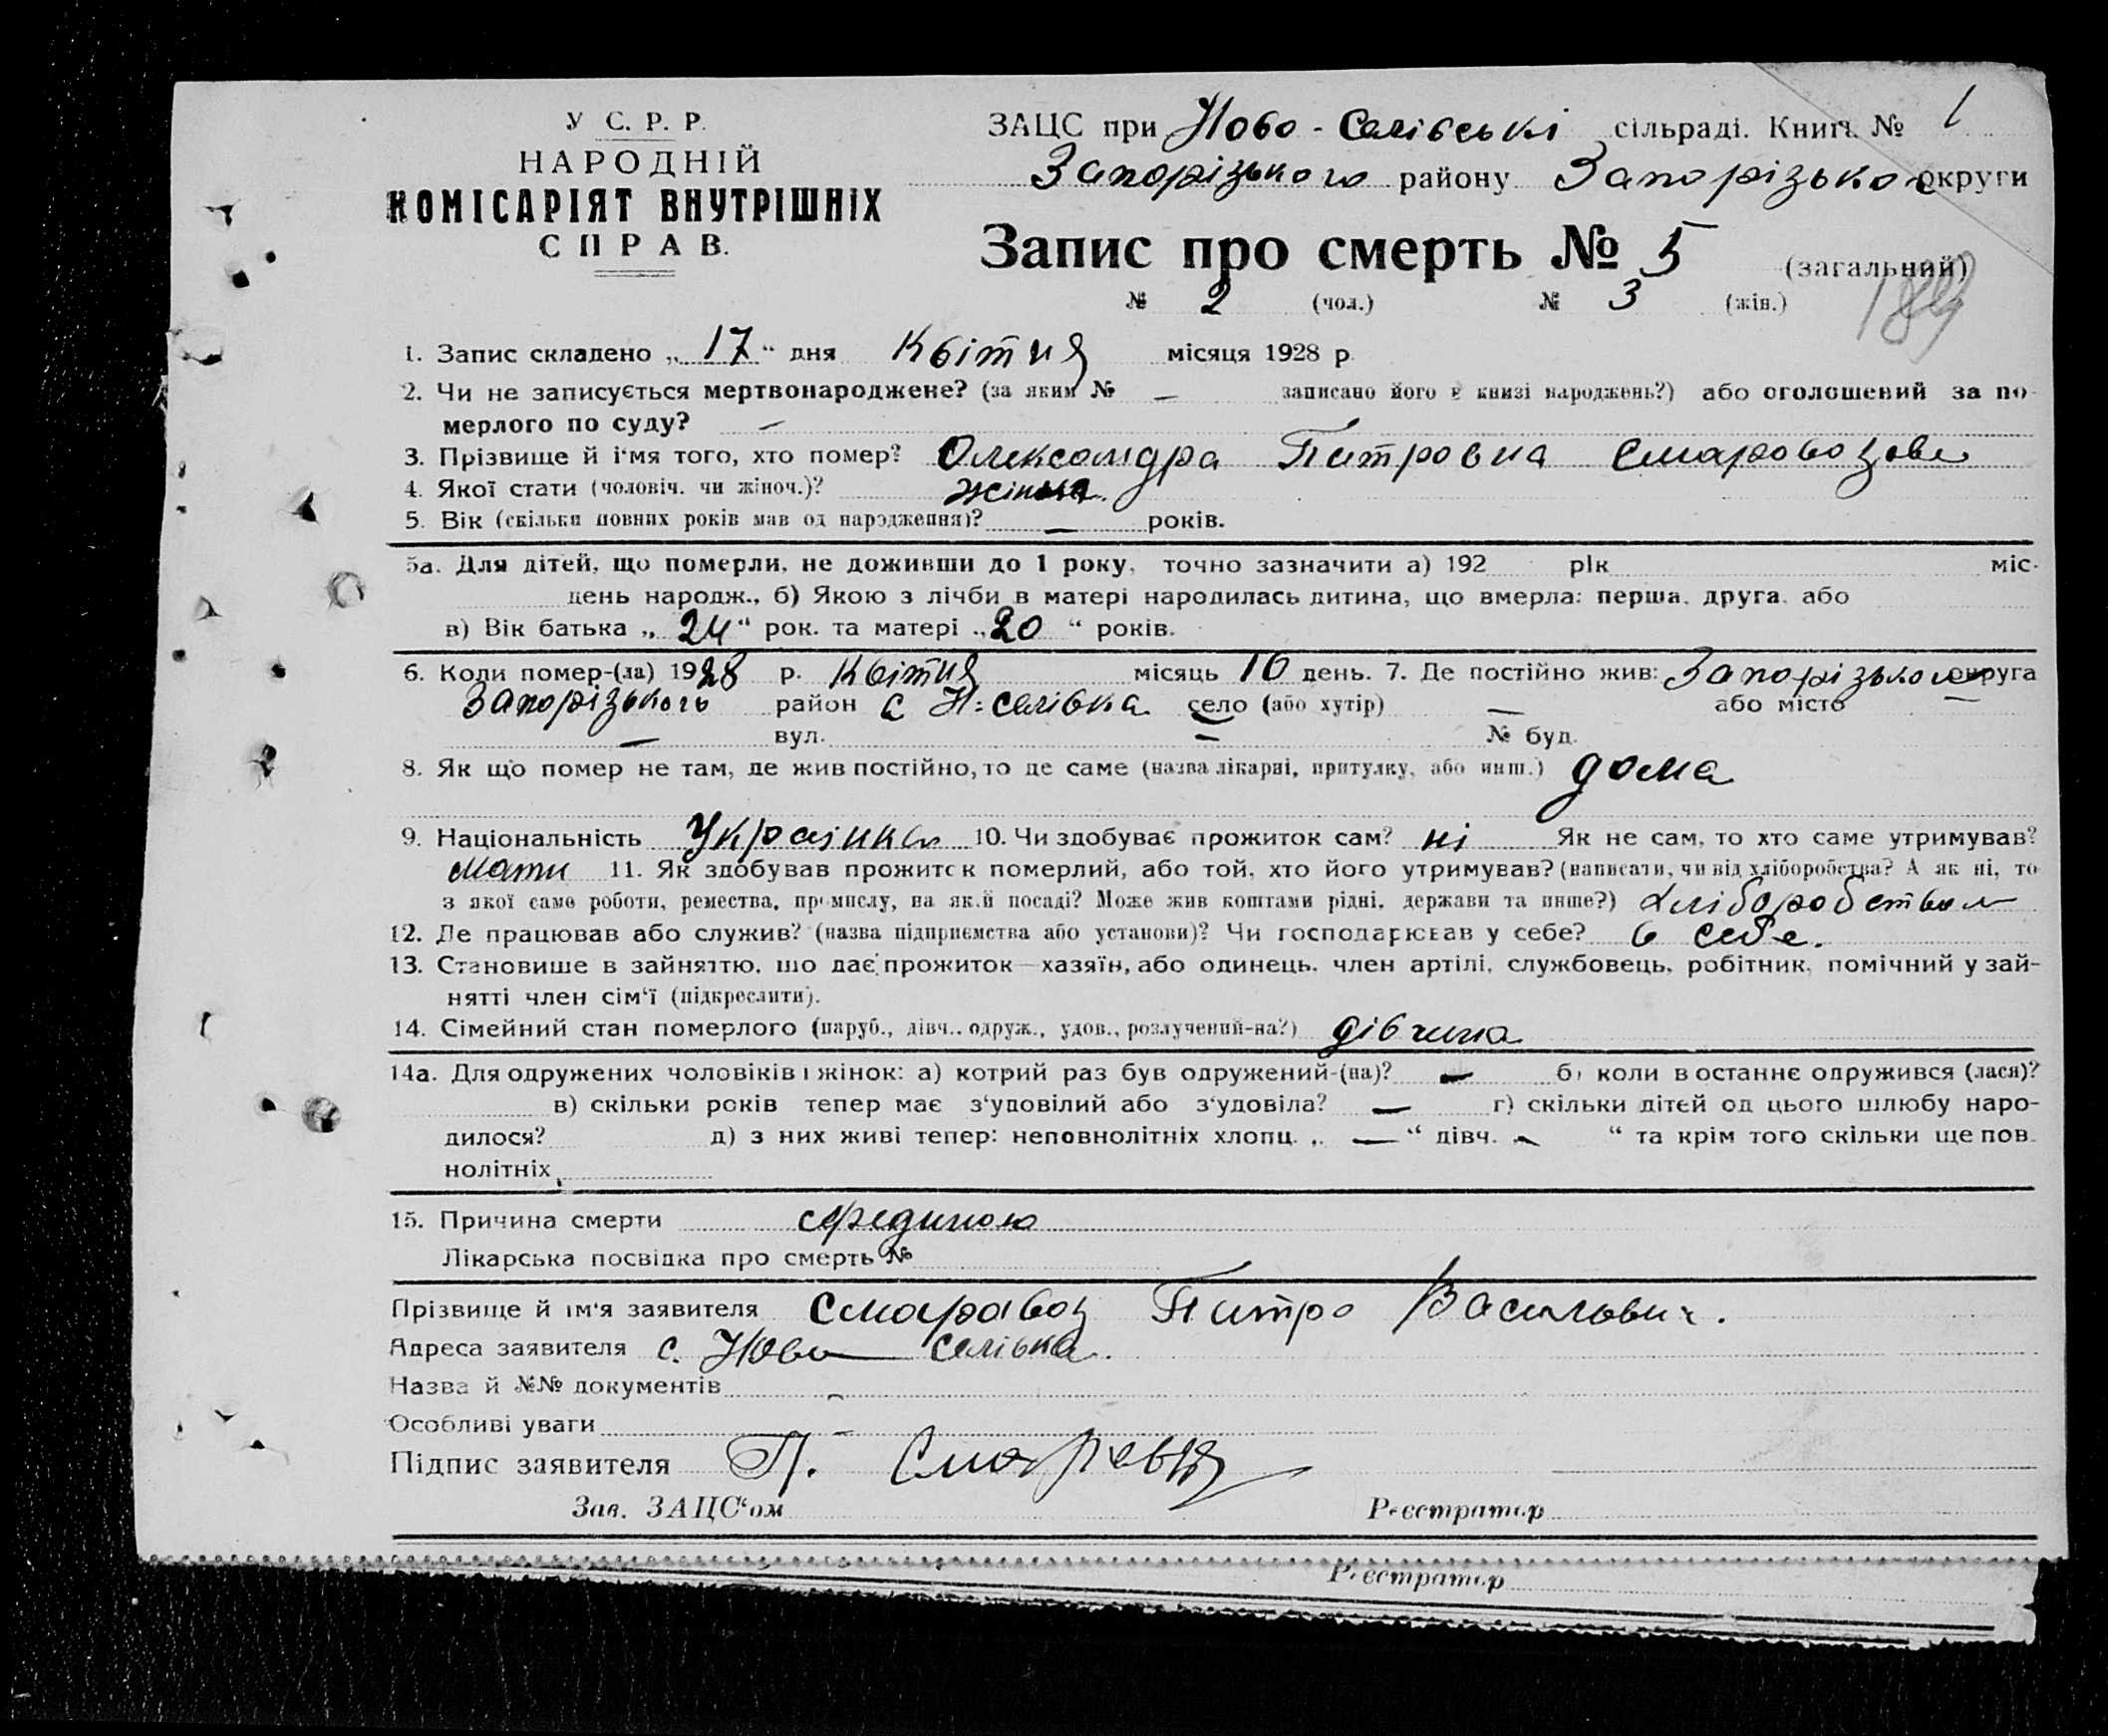 У С. Р. Р.
НАРОДНІЙ
КОМІСАРІЯТ ВНУТРІШНІХ
СПРАВ.
ЗАЦС при Ново-Селівські сільраді. Книга № 1
Запорізького району Запорізької округи
Запис про смерть № 5 (загальний)
№ 2 (чол.) № 3 (жін.)
189
1. Запис складено „17“ дня Квітня місяця 1928 р.
2. Чи не записується мертвонароджене? (за яким № — записано його в книзі народжень?) або оголошений за по-
мерлого по суду? —
3. Прізвище й ім'я того, хто помер? Олександра Питровна
4. Якої стати (чоловіч. чи жіноч.)? жіноча.
5. Вік (скільки повних років мав од народження)? — років.
5а. Для дітей, що померли, не доживши до 1 року, точно зазначити а) 192 рік міс.
день народж., б) Якою з лічби в матері народилась дитина, що вмерла: перша, друга, або
в) Вік батька „24“ рок. та матері „20“ років.
6. Коли помер-(ла) 1928 р. Квітня місяць 16 день. 7. Де постійно жив: Запорізького округа
Запорізького район с Н=селівка село (або хутір) — або місто —
— вул. — № буд.
8. Як що помер не там, де жив постійно, то де саме (назва лікарні, притулку, або инш.) дома
9. Національність Українка 10. Чи здобуває прожиток сам? ні Як не сам, то хто саме утримував?
мати 11. Як здобував прожиток померлий, або той, хто його утримував? (написати, чи від хліборобства? А як ні, то
з якої саме роботи, ремества, промислу, на якій посаді? Може жив коштами рідні, держави та инше?) хліборобством
12. Де працював або служив? (назва підприємства або установи)? Чи господарював у себе? в себе.
13. Становище в зайняттю, що дає прожиток—хазяїн, або одинець, член артілі, службовець, робітник, помічний у зай-
нятті член сім'ї (підкреслити).
14. Сімейний стан померлого (паруб., дівч., одруж., удов., розлучений-на?) дівчина
14а. Для одружених чоловіків і жінок: а) котрий раз був одружений-(на)? — б) коли в останнє одружився (лася)?
в) скільки років тепер має з'уповілий або з'удовіла? — г) скільки дітей од цього шлюбу наро-
дилося? д) з них живі тепер: неповнолітніх хлопц. „ — “ дівч. — “ та крім того скільки ще пов-
нолітніх
15. Причина смерти
Лікарська посвідка про смерть №
Прізвище й ім'я заявителя Смаровоз Питро Васильович.
Адреса заявителя с. Ново Селівка.
Назва й №№ документів —
Особливі уваги —
Підпис заявителя П. Смаровоз
Зав. ЗАЦС'ом Реєстратор
Реєстратор